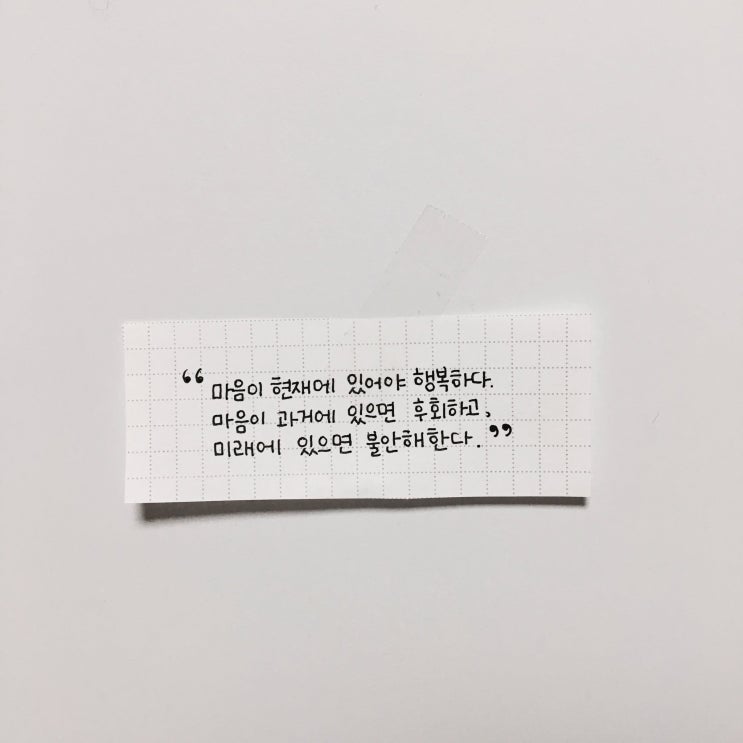 “ 마음이 현재에 있어야 행복하다.
마음이 과거에 있으면 후회하고,
미래에 있으면 불안해한다. ”